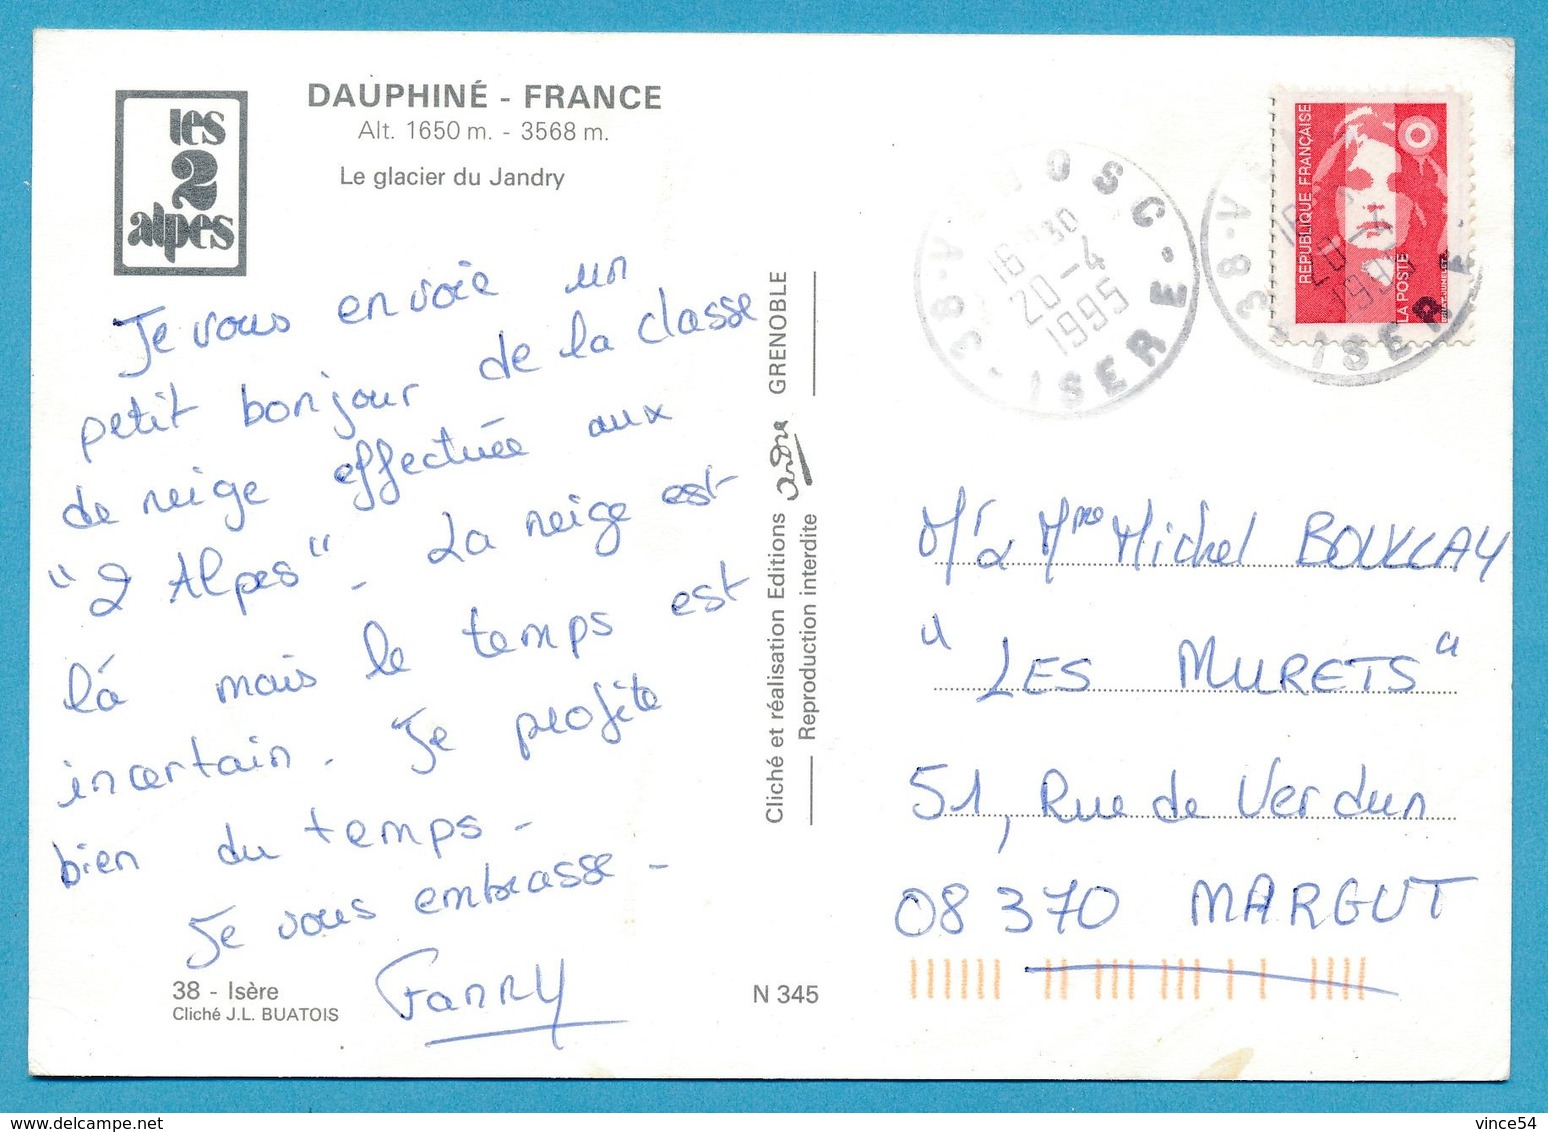 les
2
alpes
DAUPHINÉ - FRANCE
Alt. 1650 m. - 3568 m.
Le glacier du Jandry
Je vous envoie un
petit bonjour de la classe
de neige effectuée aux
"2 Alpes". La neige est
là mais le temps est
incertain. Je profite
bien du temps.
Je vous embrasse.
Fanny
38 - Isère
Cliché J.L. BUATOIS
N 345
Cliché et réalisation Editions andré GRENOBLE
Reproduction interdite
OSC
16 30
20-4
1995
38 - ISERE
RÉPUBLIQUE FRANÇAISE
LA POSTE
20-4
1995
38 - ISERE
Mr & Mme Michel BOUCLAY
"LES MURETS"
51, Rue de Verdun
08370 MARGUT
vince54